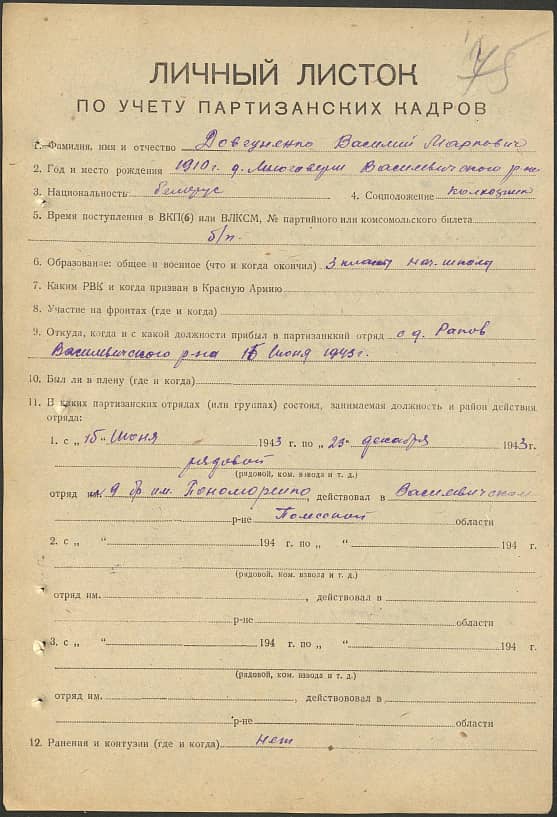 75
ЛИЧНЫЙ ЛИСТОК
ПО УЧЕТУ ПАРТИЗАНСКИХ КАДРОВ
1. Фамилия, имя и отчество Довгуненко Василий Маркович
2. Год и место рождения 1910 г. д. Василевичского р-на
3. Национальность белорус 4. Соцположение колхозник
5. Время поступления в ВКП(б) или ВЛКСМ, № партийного или комсомольского билета
б/п.
6. Образование: общее и военное (что и когда окончил) 3 класса нач. школы
7. Каким РВК и когда призван в Красную Армию
8. Участие на фронтах (где и когда)
9. Откуда, когда и с какой должности прибыл в партизанкий отряд с д. Рапов
Василевичского р-на 15 Июня 1943 г.
10. Был ли в плену (где и когда)
11. В каких партизанских отрядах (или группах) состоял, занимаемая должность и район действия
отряда:
1. с „ 15 " Июня 1943 г. по „ 23 " декабря 1943 г.
рядовой
(рядовой, ком. взвода и т. д.)
отряд им. 9 бр им. Пономаренко, действовал в Василевичском
р-не Полесской области
2. с „ " 194 г. по „ " 194 г.
(рядовой, ком. взвода и т. д.)
отряд им. , действовал в
р-не области
3. с „ " 194 г. по „ " 194 г.
(рядовой, ком. взвода и т. д.)
отряд им. , действововал в
р-не области
12. Ранения и контузии (где и когда) нет